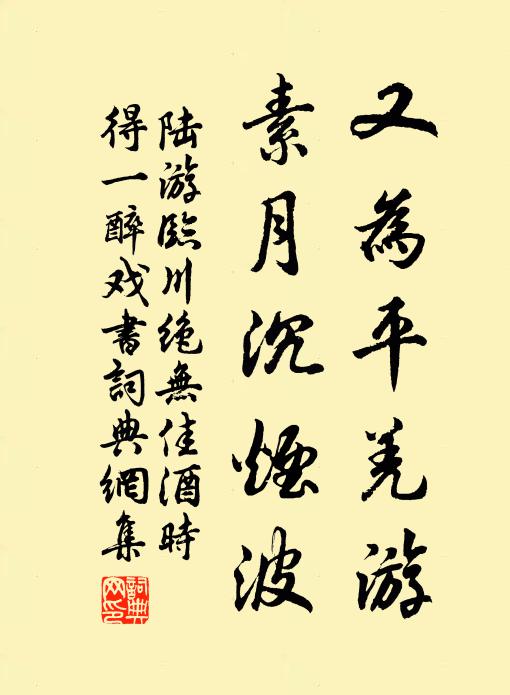 又為平羌游
素月沉煙波
陆游臨川絶無佳酒時
得一醉戏書詞典網集
詞典網印